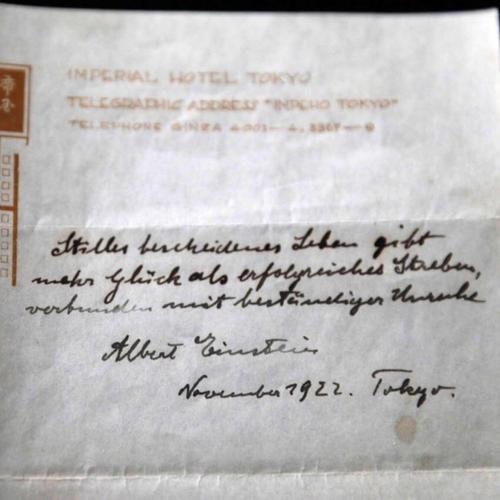 帝
IMPERIAL HOTEL TOKYO
TELEGRAPHIC ADDRESS "IMPEHO TOKYO"
TELEPHONE GINZA
Stilles bescheidenes Leben gibt
mehr Glück als erfolgreiches Streben,
verbunden mit beständiger Unruhe
Albert Einstein
November 1922. Tokyo.